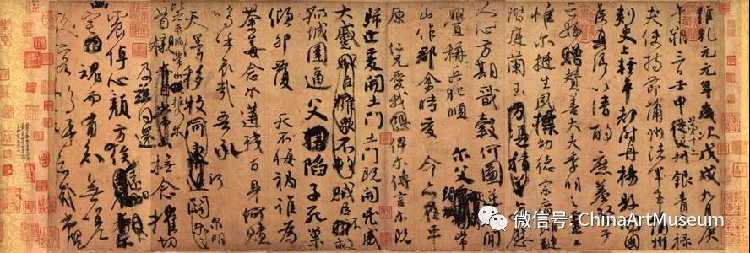 維乾元元年歲次戊戌九月庚
午朔三日壬申第十三叔銀青光祿
夫使持節蒲州諸軍事蒲州
刺史上輕車都尉丹楊縣開國
侯真卿以清酌庶羞祭于
亡姪贈贊善大夫季明之靈曰
惟爾挺生夙標幼德宗廟瑚璉
階庭蘭玉每慰
人心方期戩穀何圖逆賊閒
釁稱兵犯順爾父竭誠常
山作郡余時受命亦在平
原仁兄愛我俾爾傳言爾既
歸止爰開土門土門既開凶威
大蹙賊臣不救
孤城圍逼父陷子死巢
傾卵覆天不悔禍誰為
荼毒念爾遘殘百身何贖
嗚呼哀哉吾承
天澤移牧河關泉明
比者再陷常山攜爾
首櫬及茲同還撫念摧切
震悼心顏方俟遠日
卜爾幽宅魂而有知無嗟
久客嗚呼哀哉尚饗
微信号: ChinaArtMuseum